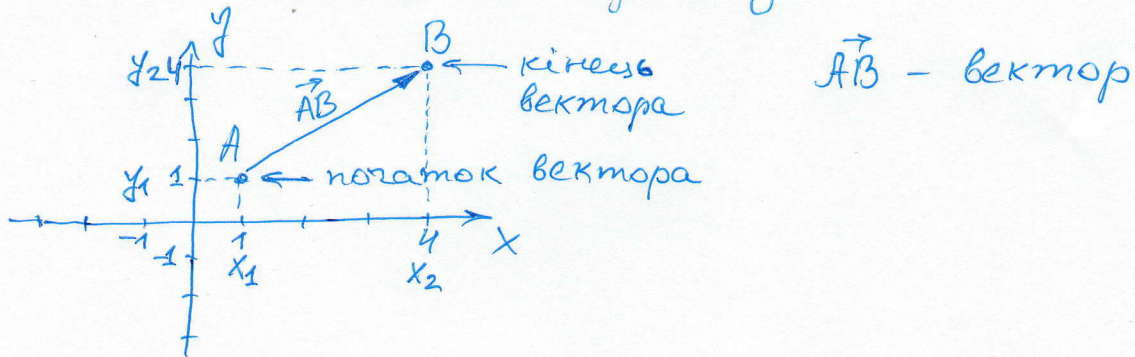 y
y₂ 4
B
кінець
вектора
A⃗B⃗ – вектор
A⃗B⃗
A
y₁ 1
початок вектора
-1
1
4
x
-1
x₁
x₂